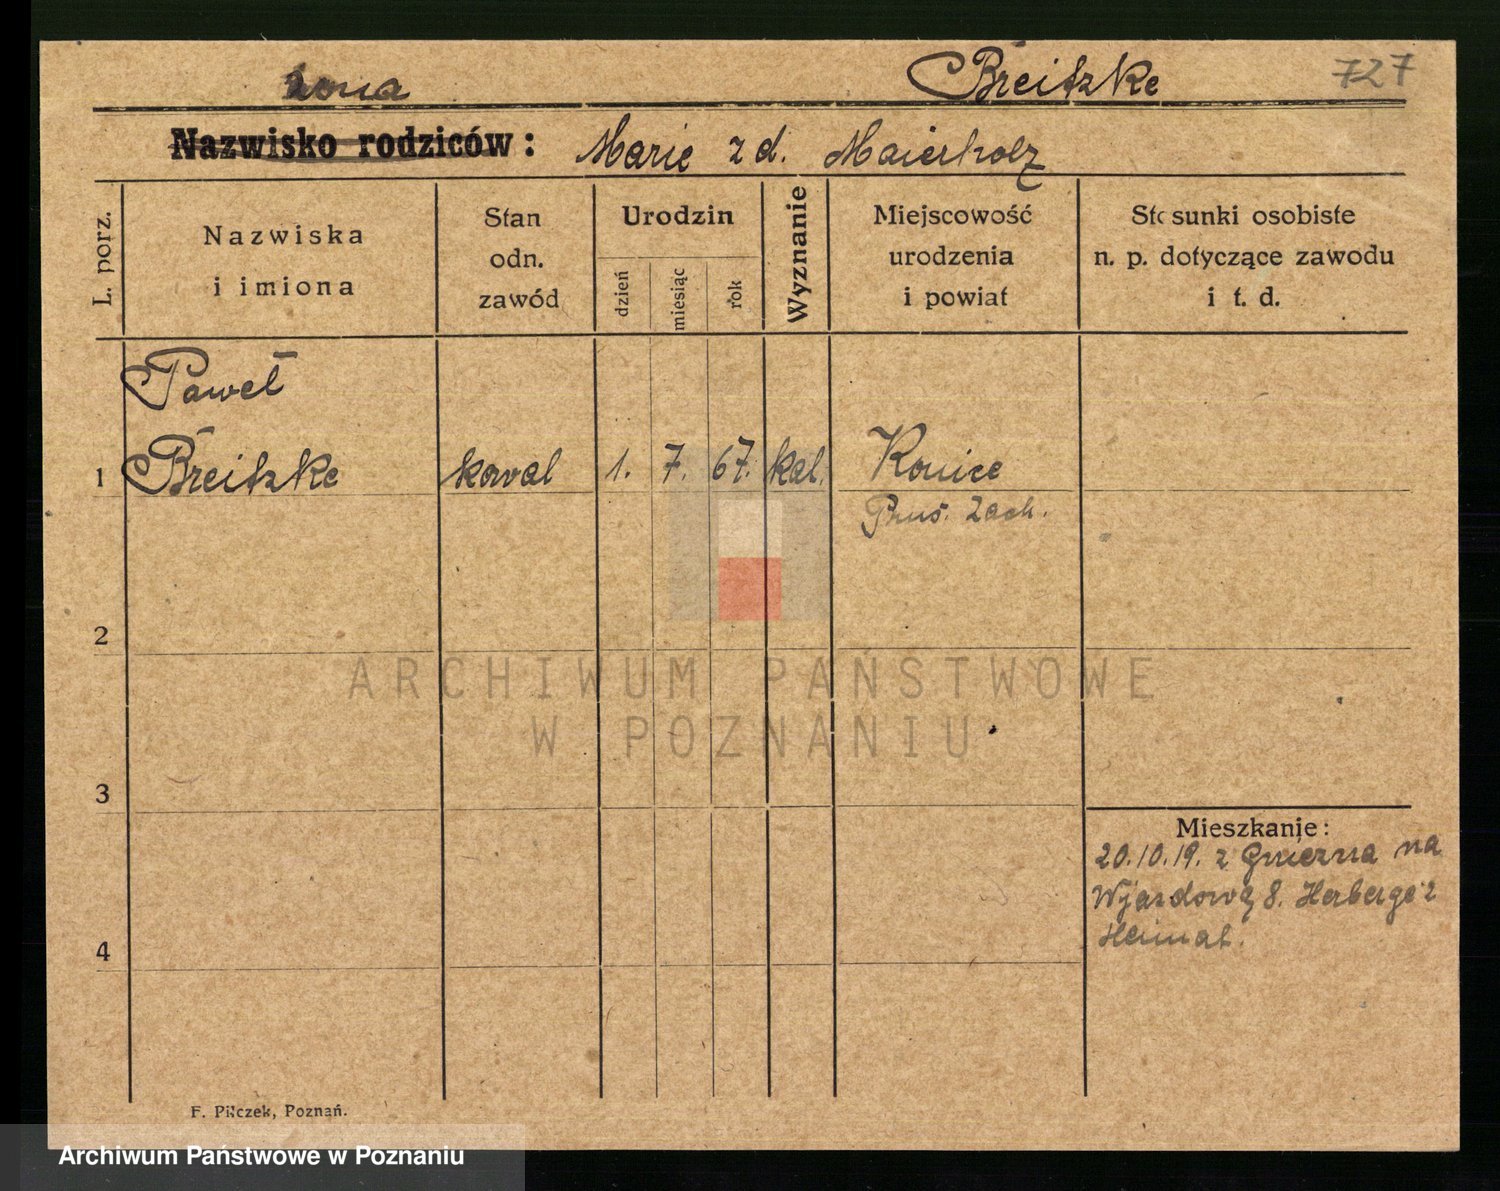 żona
Breitzke
727
Nazwisko rodziców :
Marie z d. Maierholz
L. porz.
Nazwiska
i imiona
Stan
odn.
zawód
Urodzin
dzień
miesiąc
rok
Wyznanie
Miejscowość
urodzenia
i powiat
Stosunki osobiste
n. p. dotyczące zawodu
i t. d.
Paweł
1 Breitzke kowal 1. 7. 67. kat. Konice
Prus. Zach.
2
ARCHIWUM PAŃSTWOWE
W POZNANIU
3
Mieszkanie:
20.10.19. z Gniezna na
Wjazdową 8. Herberge z
Heimat.
4
F. Pilczek, Poznań.
Archiwum Państwowe w Poznaniu